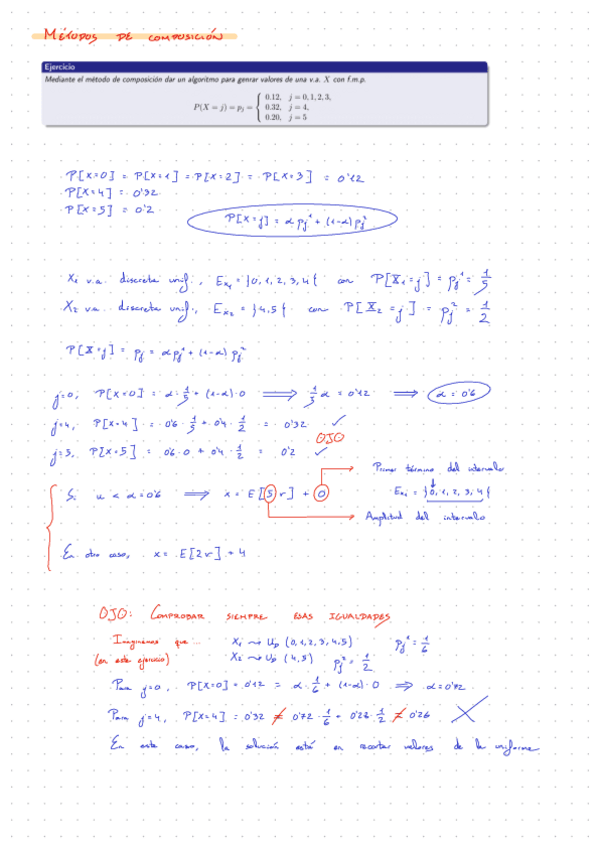 MÉTODOS DE COMPOSICIÓN
Ejercicio
Mediante el método de composición dar un algoritmo para genrar valores de una v.a. X con f.m.p.
P(X = j) = p_j = { 0.12, j = 0, 1, 2, 3,
0.32, j = 4,
0.20, j = 5
P[X=0] = P[X=1] = P[X=2] = P[X=3] = 0'12
P[X=4] = 0'32
P[X=5] = 0'2
P[X=j] = α p_j^1 + (1-α) p_j^2
X_1 v.a. discreta unif., E_{X_1} = }0, 1, 2, 3, 4{ con P[X_1=j] = p_j^1 = 1/5
X_2 v.a. discreta unif., E_{X_2} = }4, 5{ con P[X_2=j] = p_j^2 = 1/2
P[X=j] = p_j = α p_j^1 + (1-α) p_j^2
j=0; P[X=0] = α · 1/5 + (1-α) · 0 ⟹ 1/5 α = 0'12 ⟹ α = 0'6
j=4; P[X=4] = 0'6 · 1/5 + 0'4 · 1/2 = 0'32 ✓
OJO
j=5; P[X=5] = 0'6 · 0 + 0'4 · 1/2 = 0'2 ✓
Primer término del intervalo
Si u < α = 0'6 ⟹ x = E[5r] + 0
E_{X_1} = }0, 1, 2, 3, 4{
Amplitud del intervalo
En otro caso, x = E[2r] + 4
OJO: COMPROBAR SIEMPRE ESAS IGUALDADES
Imaginemos que ... X_1 ⇝ U_D (0, 1, 2, 3, 4, 5) p_j^1 = 1/6
(en este ejercicio) X_2 ⇝ U_D (4, 5) p_j^2 = 1/2
Para j=0, P[X=0] = 0'12 = α · 1/6 + (1-α) · 0 ⟹ α = 0'72
Para j=4, P[X=4] = 0'32 ≠ 0'72 · 1/6 + 0'28 · 1/2 ≠ 0'26 X
En este caso, la solución está en recortar valores de la uniforme